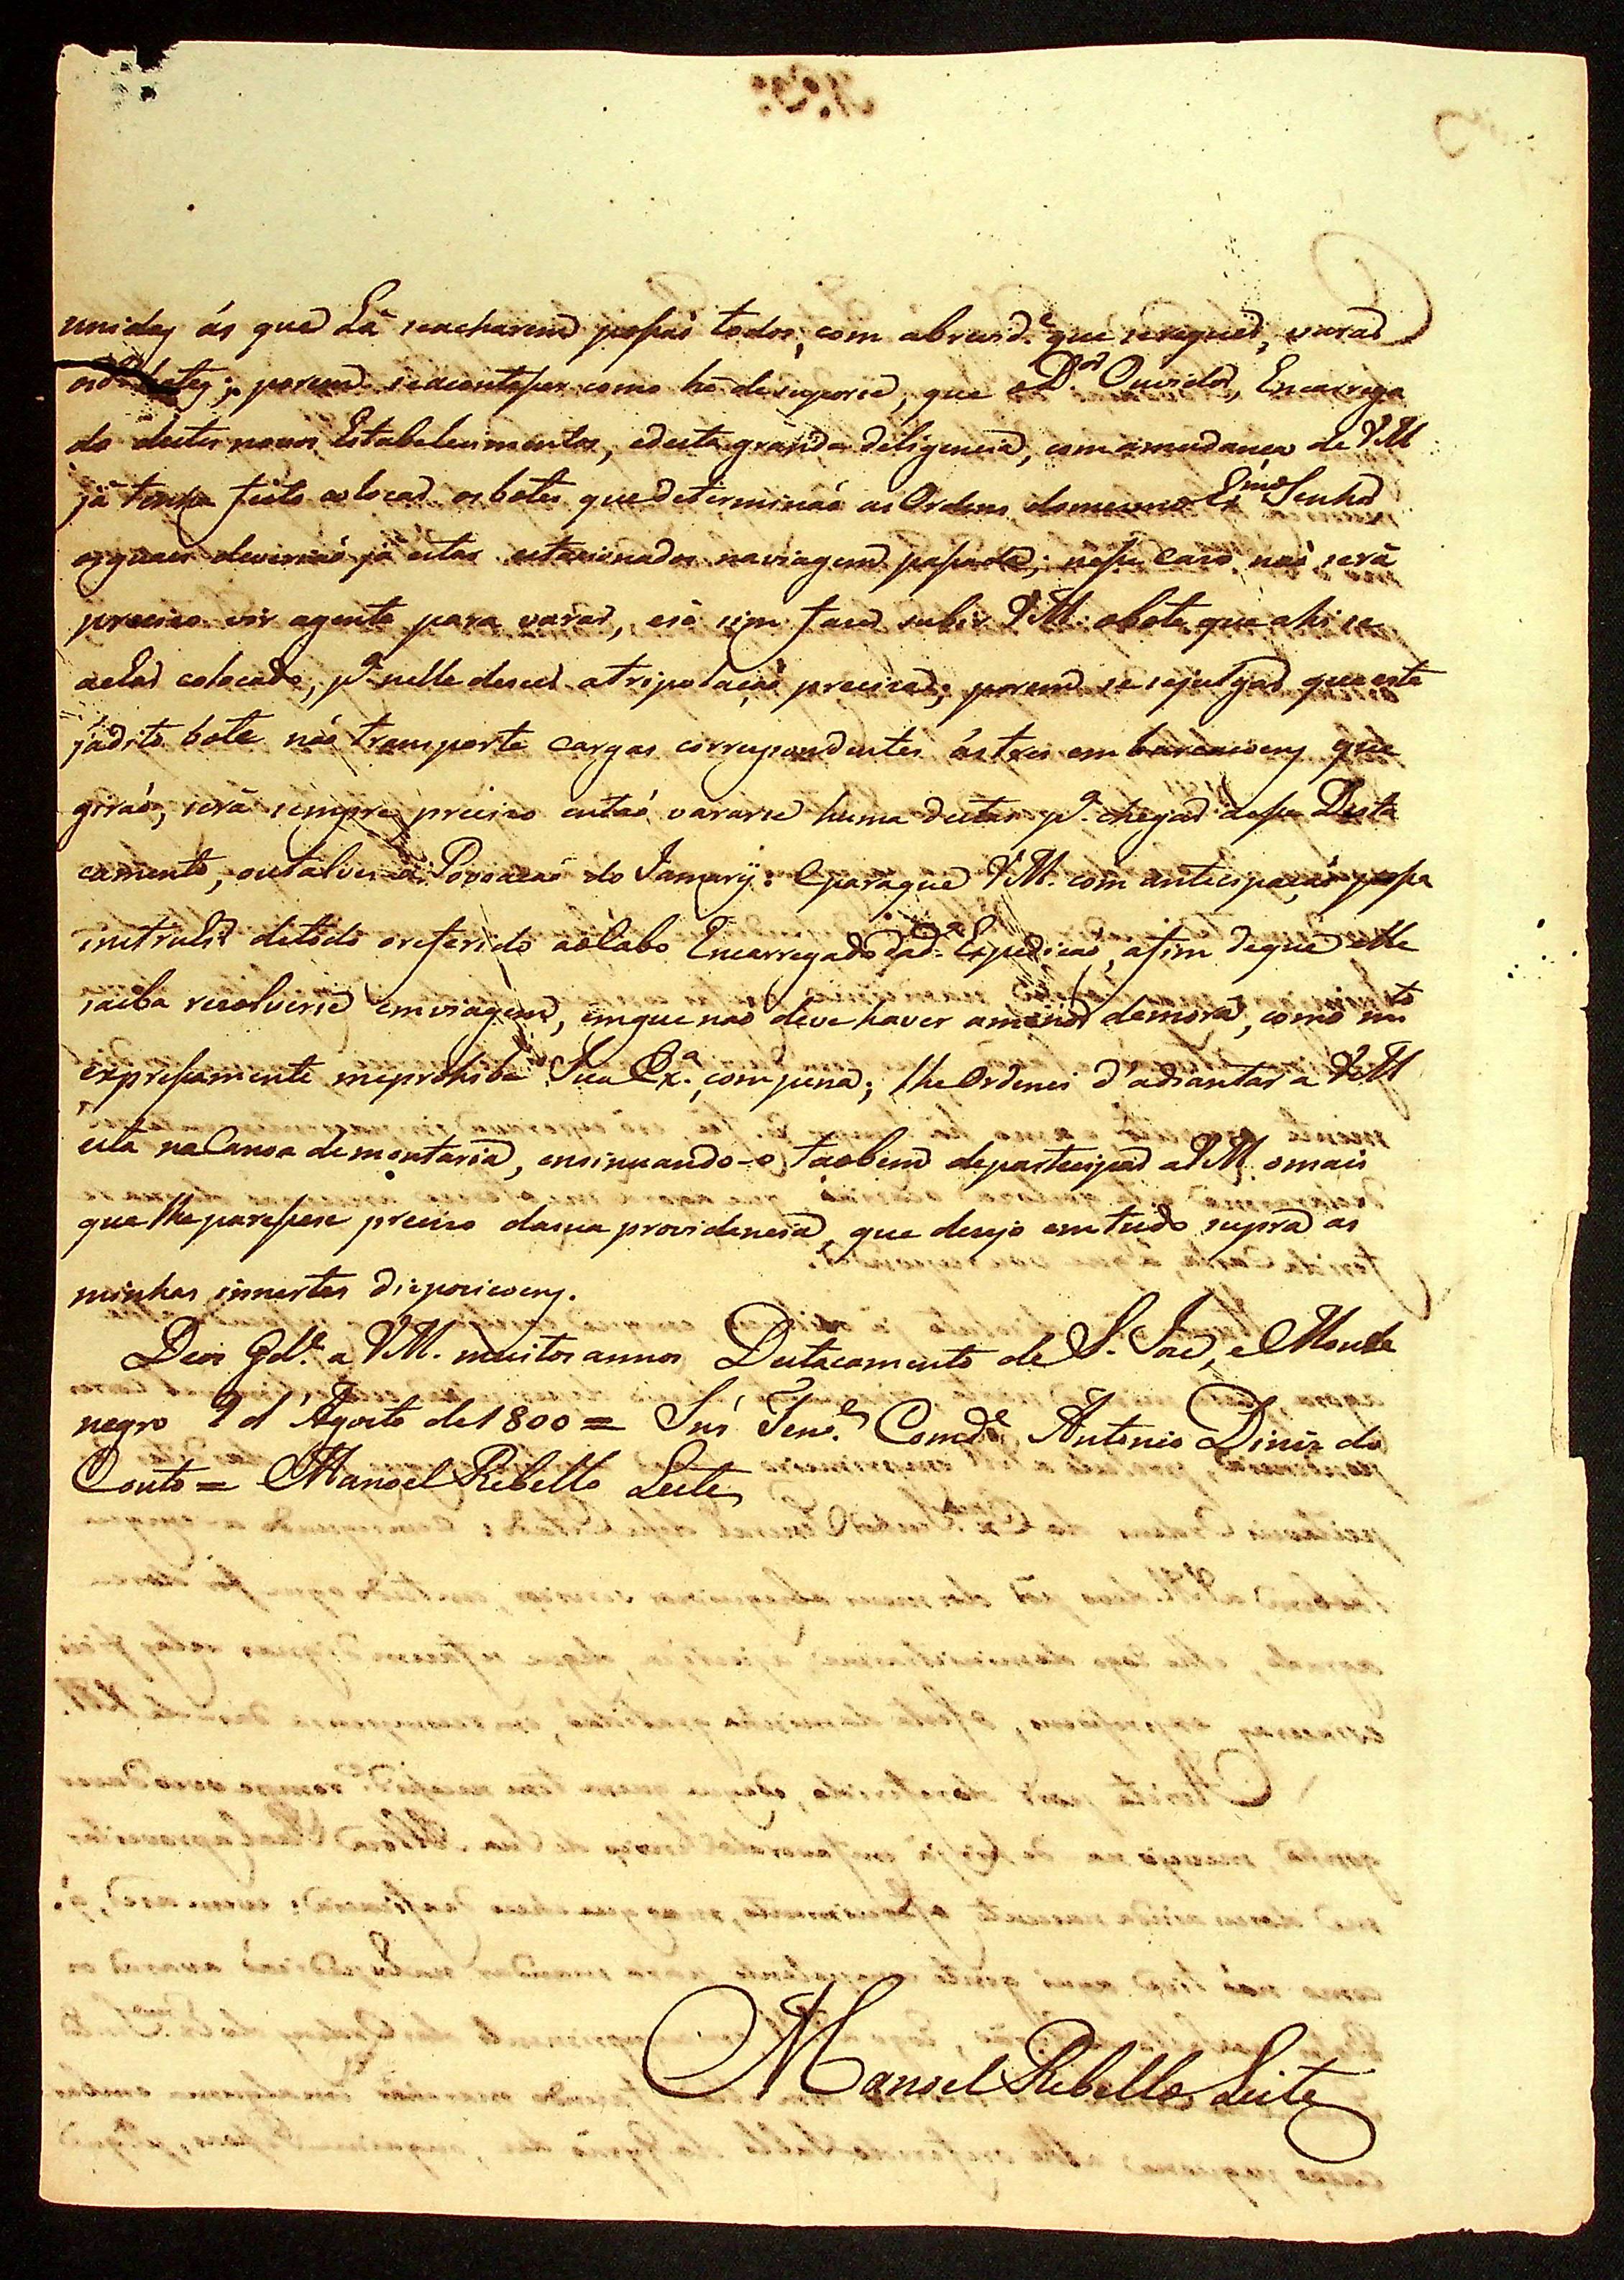 unidas ás que Lá seacharem possaõ todos, com abrevid.e que serequer, varar
os d.os botes; porem seacontesser como hé desuporse, que o D.or Ouvidor, Encarrega
do destes novos Estabelecimentos, edesta grande deligencia, com amudança de VM
já tenha feito colocar osbotes que determinaõ as Ordens domesmo Ex.mo Senhor
osquaes deveriaõ já estar estacionados naviagem passada; nesse caso naõ será
preciso vir agente para varar, esó sim fazer subir VM. obote que ahi se
achar colocado, p.a nelle descer atripolaçaõ precisa; porem se sejulgar que este
jádito bote naõ transporte cargas correspondentes ás tres embarcaçoens que
giraõ, será sempre preciso entaõ vararse huma destas p.a chegar aesse Desta
camento, outalvez á Povoacaõ do Jamarÿ: Eparaque VM. com antecipaçaõ possa
instruir detodo oreferido aoCabo Encarregado dad.a Expediçaõ, afim deque elle
saiba resolverse emviagem, emque naõ deve haver amenor demora, como m.to
expressamente meprohibe Sua Ex.a, compena; lhe Ordenei d'adiantar a VM
esta naCanoa demontaria, ensinuando-o taobem departecipar aVM. omais
que lheparessese preciso dasua providencia, que desejo emtudo supra as
minhas innertes disposiçoens.
Deos Gd.e a VM. muitos annos Destacamento de S. Joze, e Monte
negro 9 d'Agosto de 1800 = Snr' Ten.e Comd.e Antonio Diniz do
Couto = Manoel Rebello Leite
Manoel Rebello Leite